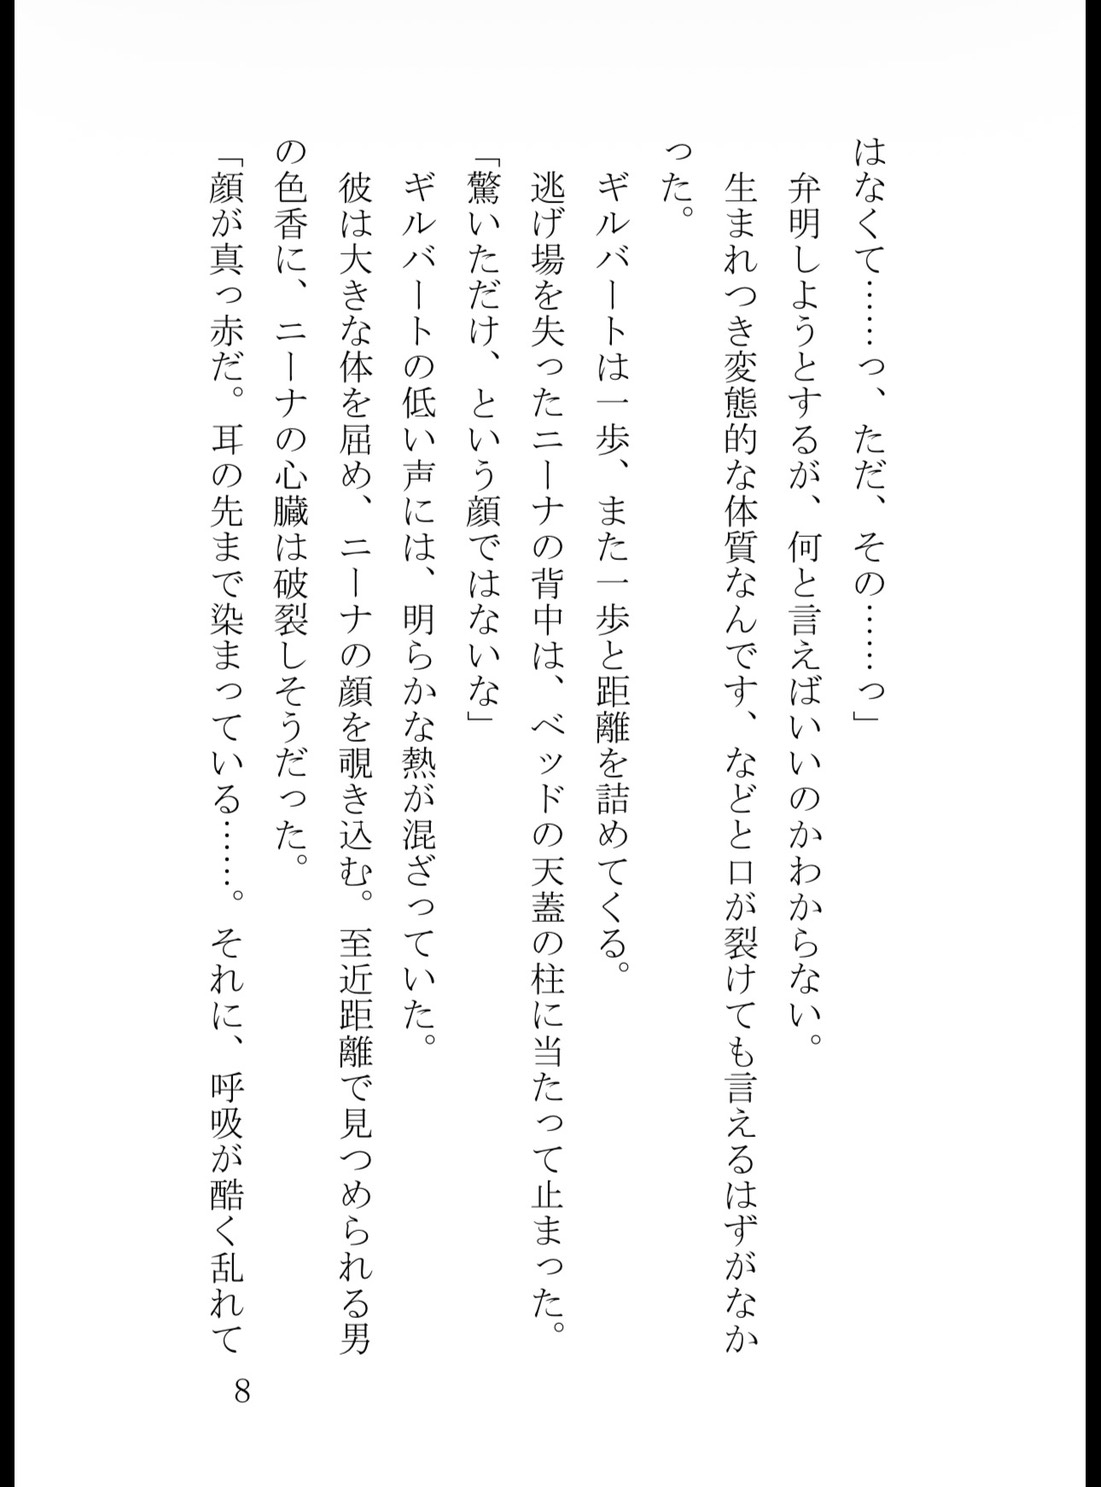 はなくて……っ、ただ、その……っ」
弁明しようとするが、何と言えばいいのかわからない。
生まれつき変態的な体質なんです、などと口が裂けても言えるはずがなか
った。
ギルバートは一歩、また一歩と距離を詰めてくる。
逃げ場を失ったニーナの背中は、ベッドの天蓋の柱に当たって止まった。
「驚いただけ、という顔ではないな」
ギルバートの低い声には、明らかな熱が混ざっていた。
彼は大きな体を屈め、ニーナの顔を覗き込む。至近距離で見つめられる男
の色香に、ニーナの心臓は破裂しそうだった。
「顔が真っ赤だ。耳の先まで染まっている……。それに、呼吸が酷く乱れて
8